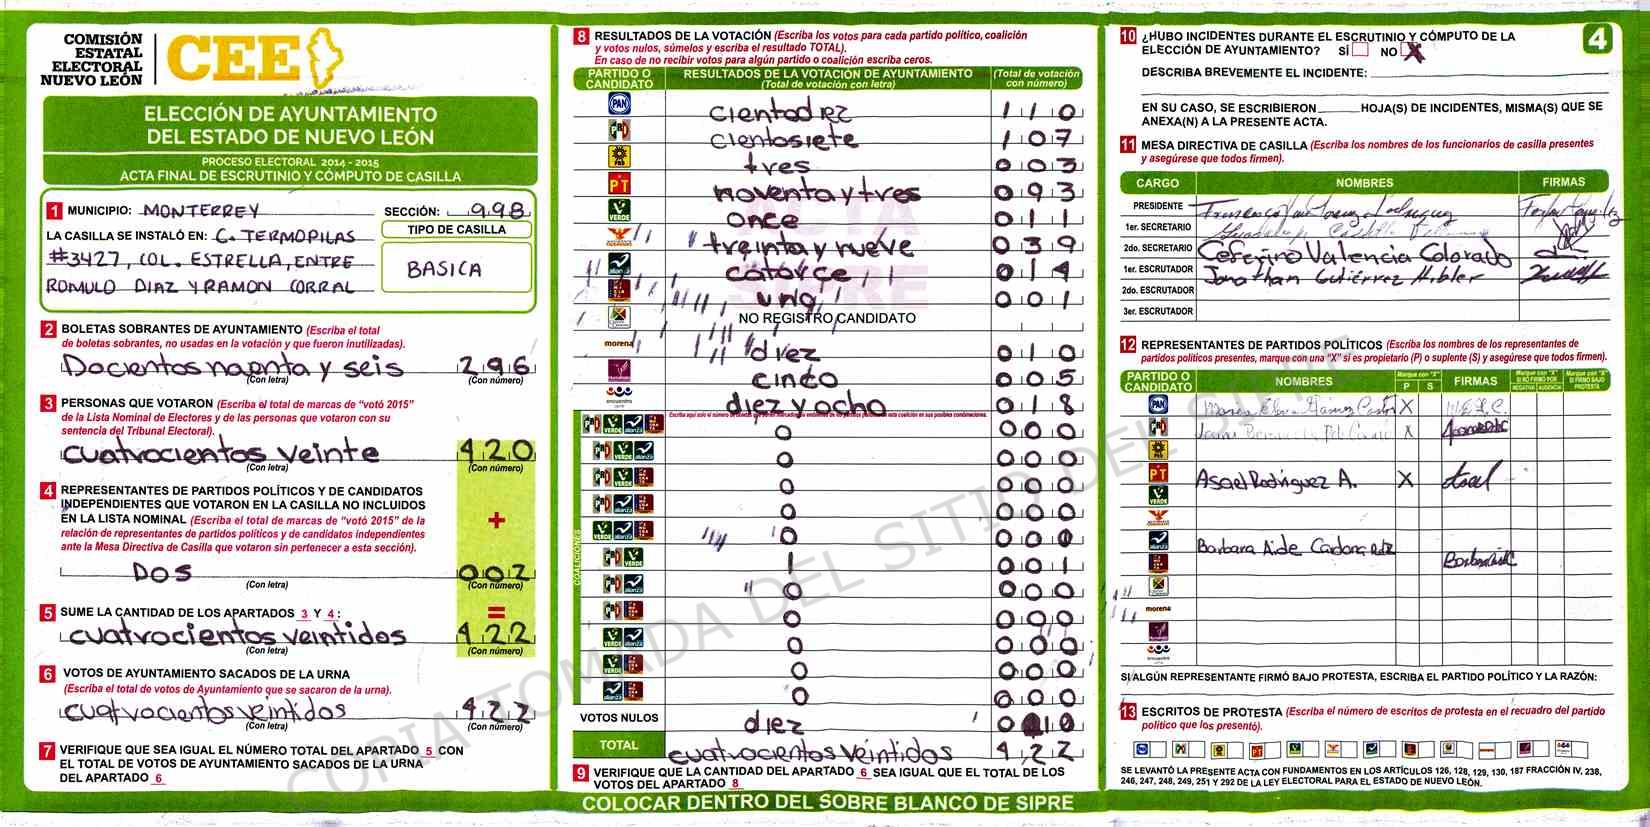 COMISIÓN
ESTATAL
ELECTORAL
NUEVO LEÓN
CEE
ELECCIÓN DE AYUNTAMIENTO
DEL ESTADO DE NUEVO LEÓN
PROCESO ELECTORAL 2014 - 2015
ACTA FINAL DE ESCRUTINIO Y CÓMPUTO DE CASILLA
1 MUNICIPIO: MONTERREY SECCIÓN: 998
LA CASILLA SE INSTALÓ EN: C. TERMOPILAS
#3427, COL. ESTRELLA, ENTRE
ROMULO DIAZ Y RAMON CORRAL
TIPO DE CASILLA
BASICA
2 BOLETAS SOBRANTES DE AYUNTAMIENTO (Escriba el total
de boletas sobrantes, no usadas en la votación y que fueron inutilizadas).
Docientos y seis 296
(Con letra) (Con número)
3 PERSONAS QUE VOTARON (Escriba el total de marcas de "votó 2015"
de la Lista Nominal de Electores y de las personas que votaron con su
sentencia del Tribunal Electoral).
cuatrocientos veinte 420
(Con letra) (Con número)
4 REPRESENTANTES DE PARTIDOS POLÍTICOS Y DE CANDIDATOS
INDEPENDIENTES QUE VOTARON EN LA CASILLA NO INCLUIDOS
EN LA LISTA NOMINAL (Escriba el total de marcas de "votó 2015" de la
relación de representantes de partidos políticos y de candidatos independientes
ante la Mesa Directiva de Casilla que votaron sin pertenecer a esta sección).
+
DOS 002
(Con letra) (Con número)
=
5 SUME LA CANTIDAD DE LOS APARTADOS 3 Y 4:
cuatrocientos veintidos 422
(Con letra) (Con número)
6 VOTOS DE AYUNTAMIENTO SACADOS DE LA URNA
(Escriba el total de votos de Ayuntamiento que se sacaron de la urna).
cuatrocientos veintidos 422
(Con letra) (Con número)
7 VERIFIQUE QUE SEA IGUAL EL NÚMERO TOTAL DEL APARTADO 5 CON
EL TOTAL DE VOTOS DE AYUNTAMIENTO SACADOS DE LA URNA
DEL APARTADO 6
8 RESULTADOS DE LA VOTACIÓN (Escriba los votos para cada partido político, coalición
y votos nulos, súmelos y escriba el resultado TOTAL).
En caso de no recibir votos para algún partido o coalición escriba ceros.
PARTIDO O CANDIDATO RESULTADOS DE LA VOTACIÓN DE AYUNTAMIENTO (Total de votación con letra) (Total de votación con número)
PAN cientodiez 110
cientosiete 107
PRD tres 003
PT noventa y tres 093
VERDE once 011
treinta y nueve 039
alianza catorce 014
uno 001
NO REGISTRO CANDIDATO
morena diez 010
cinco 005
encuentro diez y ocho 018
COALICIONES
VERDE alianza 0 000
VERDE alianza 0 000
VERDE 0 000
alianza 0 000
VERDE alianza 0 000
VERDE 1 001
alianza 0 000
0 000
VERDE alianza 0 000
VERDE 0 000
alianza 0 000
VOTOS NULOS diez 010
TOTAL cuatrocientos veintidos 422
9 VERIFIQUE QUE LA CANTIDAD DEL APARTADO 6 SEA IGUAL QUE EL TOTAL DE LOS
VOTOS DEL APARTADO 8
COLOCAR DENTRO DEL SOBRE BLANCO DE SIPRE
10 ¿HUBO INCIDENTES DURANTE EL ESCRUTINIO Y CÓMPUTO DE LA
ELECCIÓN DE AYUNTAMIENTO? SÍ NO X
4
DESCRIBA BREVEMENTE EL INCIDENTE:
EN SU CASO, SE ESCRIBIERON HOJA(S) DE INCIDENTES, MISMA(S) QUE SE
ANEXA(N) A LA PRESENTE ACTA.
11 MESA DIRECTIVA DE CASILLA (Escriba los nombres de los funcionarios de casilla presentes
y asegúrese que todos firmen).
CARGO NOMBRES FIRMAS
PRESIDENTE
1er. SECRETARIO Guadalupe
2do. SECRETARIO Ceferino Valencia Colorado
1er. ESCRUTADOR Jonathan Gutiérrez
2do. ESCRUTADOR
3er. ESCRUTADOR
12 REPRESENTANTES DE PARTIDOS POLÍTICOS (Escriba los nombres de los representantes de
partidos políticos presentes, marque con una "X" si es propietario (P) o suplente (S) y asegúrese que todos firmen).
PARTIDO O CANDIDATO NOMBRES Marque con "X" P S FIRMAS Marque con "X" SI NO FIRMÓ POR NEGATIVA AUSENCIA Marque con "X" SI FIRMÓ BAJO PROTESTA
PAN X
X
PRD
PT Asael Rodriguez A. X
VERDE
alianza Barbara Aide Cardona
morena
encuentro
SI ALGÚN REPRESENTANTE FIRMÓ BAJO PROTESTA, ESCRIBA EL PARTIDO POLÍTICO Y LA RAZÓN:
13 ESCRITOS DE PROTESTA (Escriba el número de escritos de protesta en el recuadro del partido
político que los presentó).
SE LEVANTÓ LA PRESENTE ACTA CON FUNDAMENTOS EN LOS ARTÍCULOS 126, 128, 129, 130, 187 FRACCIÓN IV, 238,
246, 247, 248, 249, 251 Y 292 DE LA LEY ELECTORAL PARA EL ESTADO DE NUEVO LEÓN.
COPIA TOMADA DEL SITIO DEL SIPRE
ACTA
SIPRE